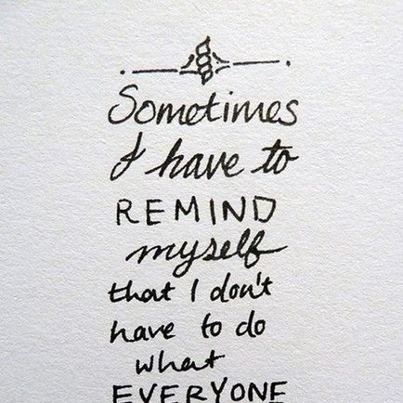 Sometimes
I have to
REMIND
myself
that I don't
have to do
what
EVERYONE